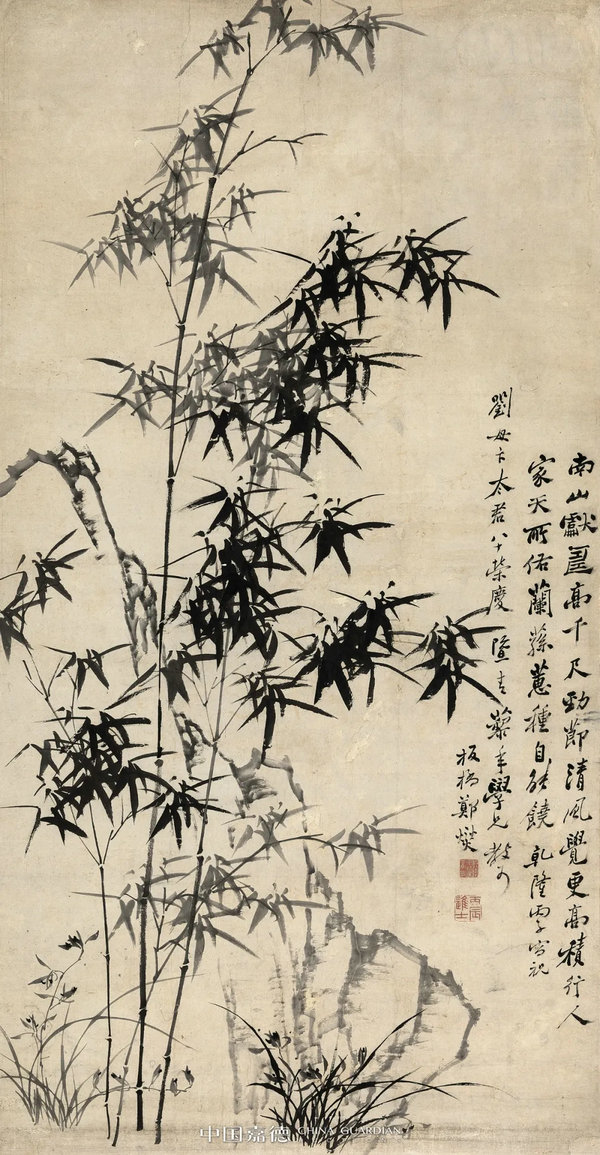 南山獻壽高千尺勁節清風覺更高積行人
家天所佑蘭蓀蕙種自能饒乾隆丙子寫祝
劉母卞太君八十榮慶
藜年學兄教可
板橋鄭燮
丙辰進士
中国嘉德 CHINA GUARDIAN